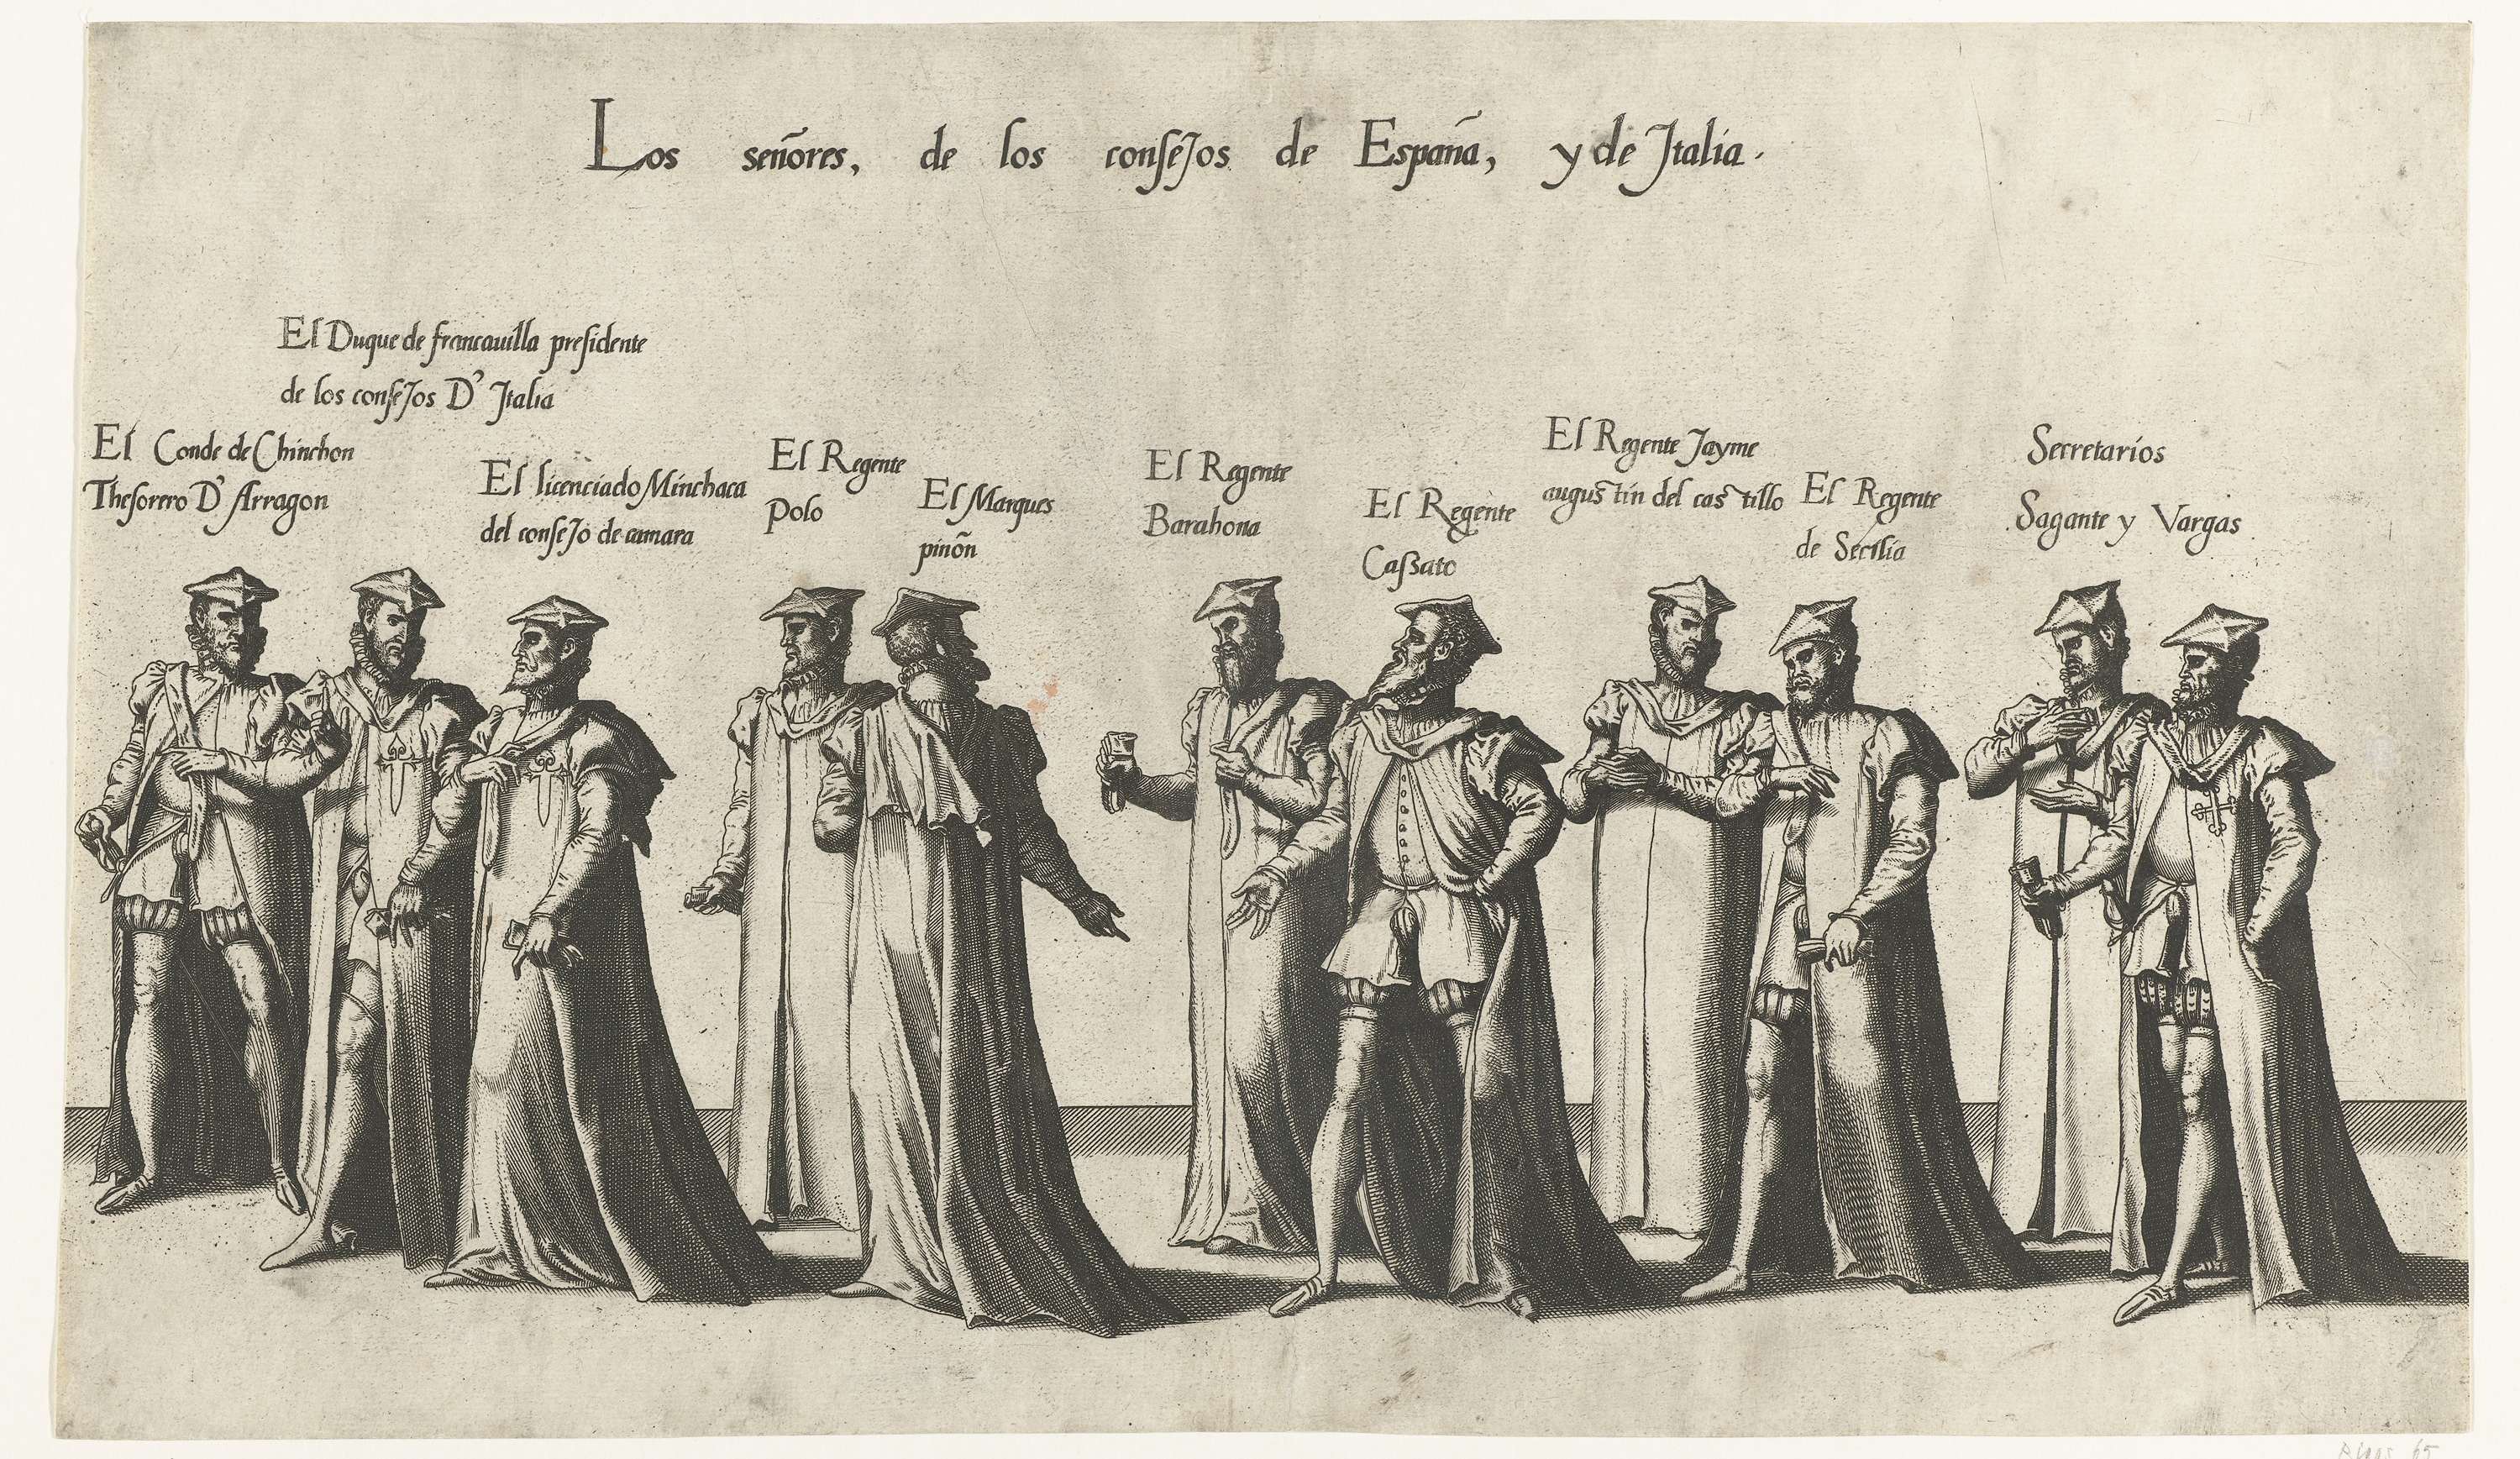 Los señores, de los conseJos de España, y de Italia.
El Duque de francauilla presidente
de los conseJos D' Italia
El Conde de Chinchon
Thesorero D' Arragon
El licenciado Minchaca
del conseJo de camara
El Regente
Polo
El Marques
pinõn
El Regente
Barahona
El Regente
Caſsato
El Regente Jayme
augustin del castillo
El Regente
de Secilia
Secretarios
Sagante y Vargas